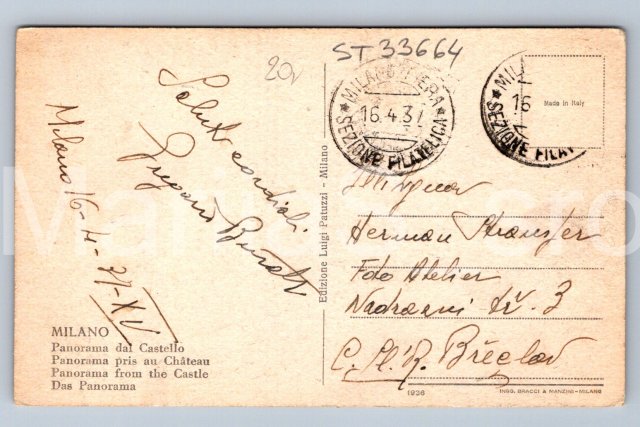 20v
ST 33664
MILANO FIERA
16.4.37
* SEZIONE FILATELICA *
MIL
16
* SEZIONE FILAT
Made in Italy
Saluti cordiali
Milano 16-4-37-XV
Edizione Luigi Patuzzi - Milano
Herman
Foto Atelier
Nadrazni tř. 3
Č.S.R. Břeclav
MILANO
Panorama dal Castello
Panorama pris au Château
Panorama from the Castle
Das Panorama
1936
INGG. BRACCI & MANZINI-MILANO